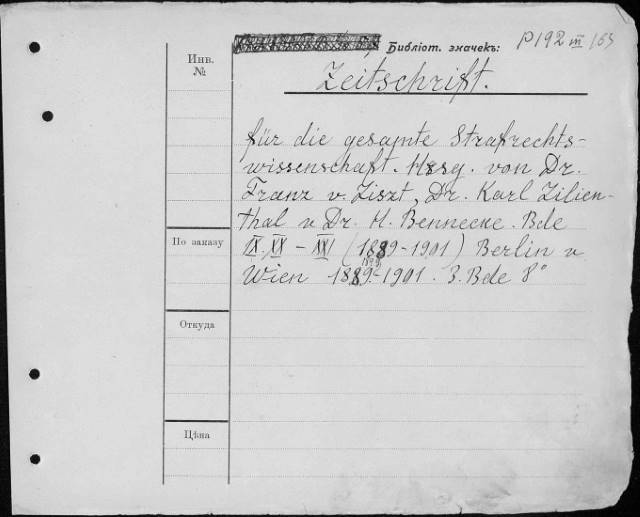 Библіот. значекъ: P192 III/63
Инв. №
Zeitschrift.
für die gesamte Strafrechts-
wissenschaft. Hrsg. von Dr.
Franz v. Liszt, Dr. Karl Lilien-
thal u Dr. H. Bennecke. Bde
IX. XX - XXI (1889-1901) Berlin u
1899.
Wien 1889-1901. 3. Bde 8°
По заказу
Откуда
Цѣна